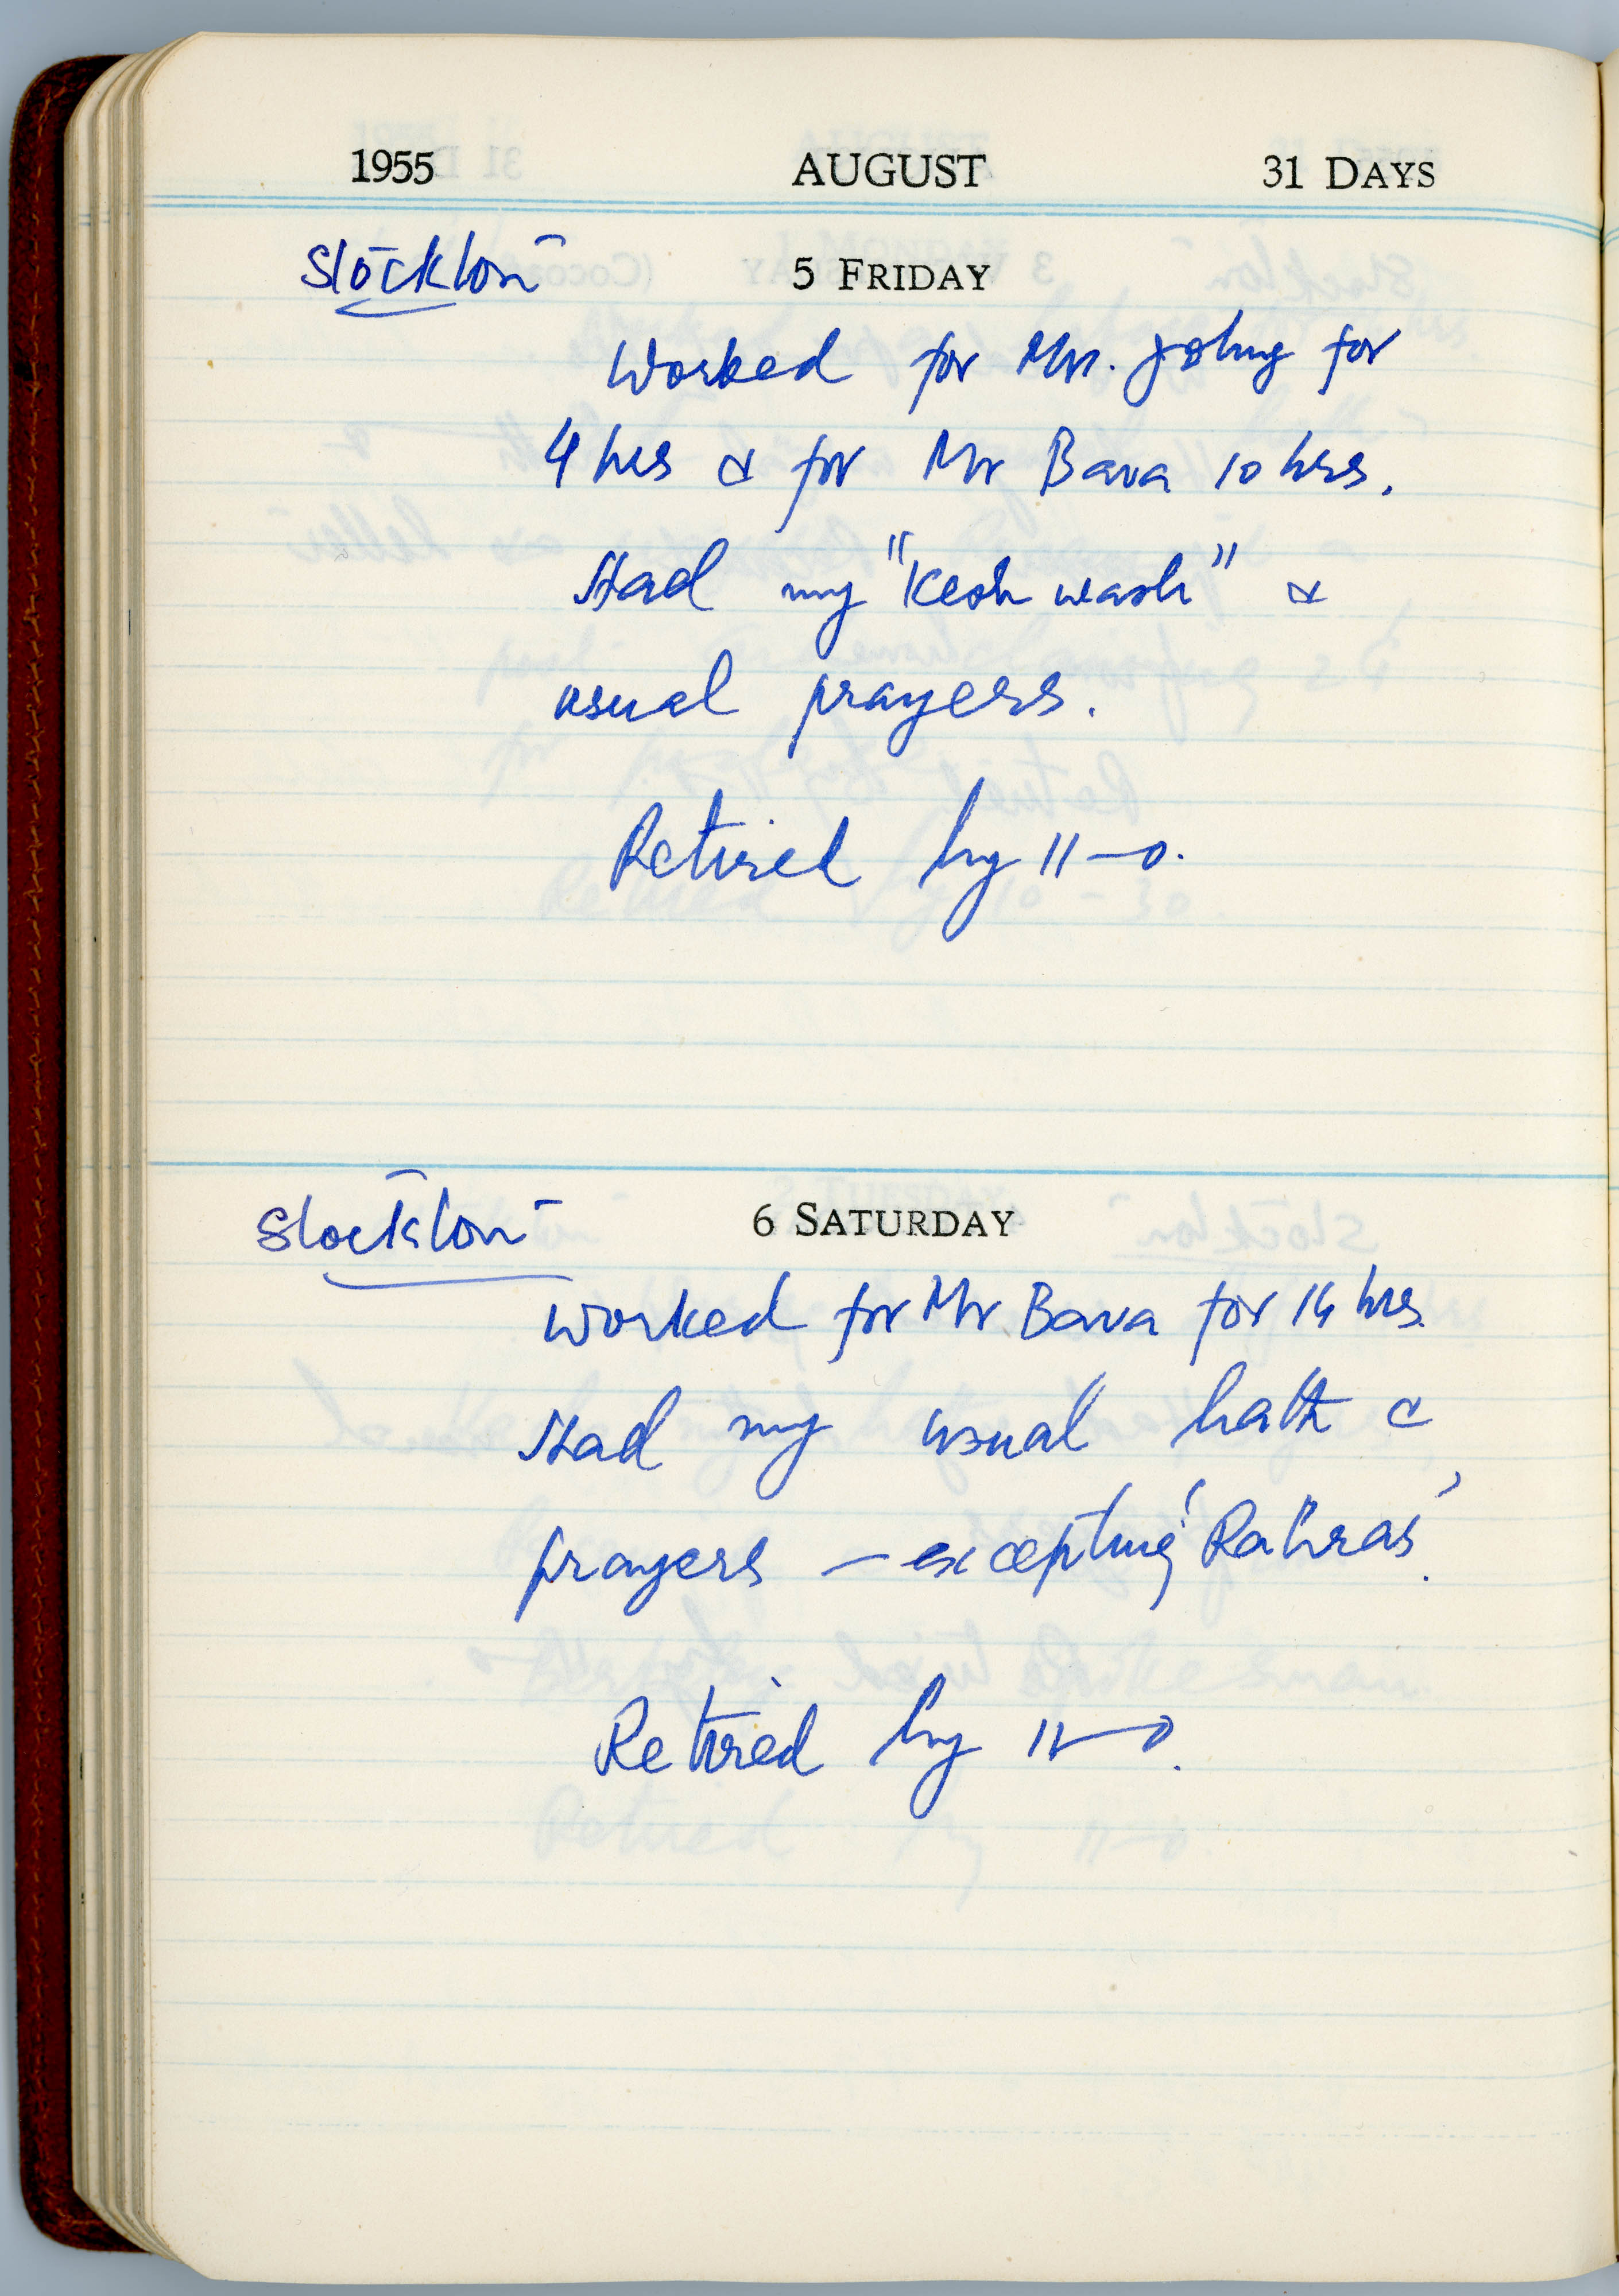 1955 AUGUST 31 DAYS
Stockton 5 FRIDAY
Worked for Mr. Johny for
4 hrs & for Mr Bava 10 hrs.
Had my "Kesh wash" &
usual prayers.
Retired by 11-0.
Stockton 6 SATURDAY
Worked for Mr Bava for 14 hrs.
Had my usual bath &
prayers - excepting 'Rahras'.
Retired by 11-0.